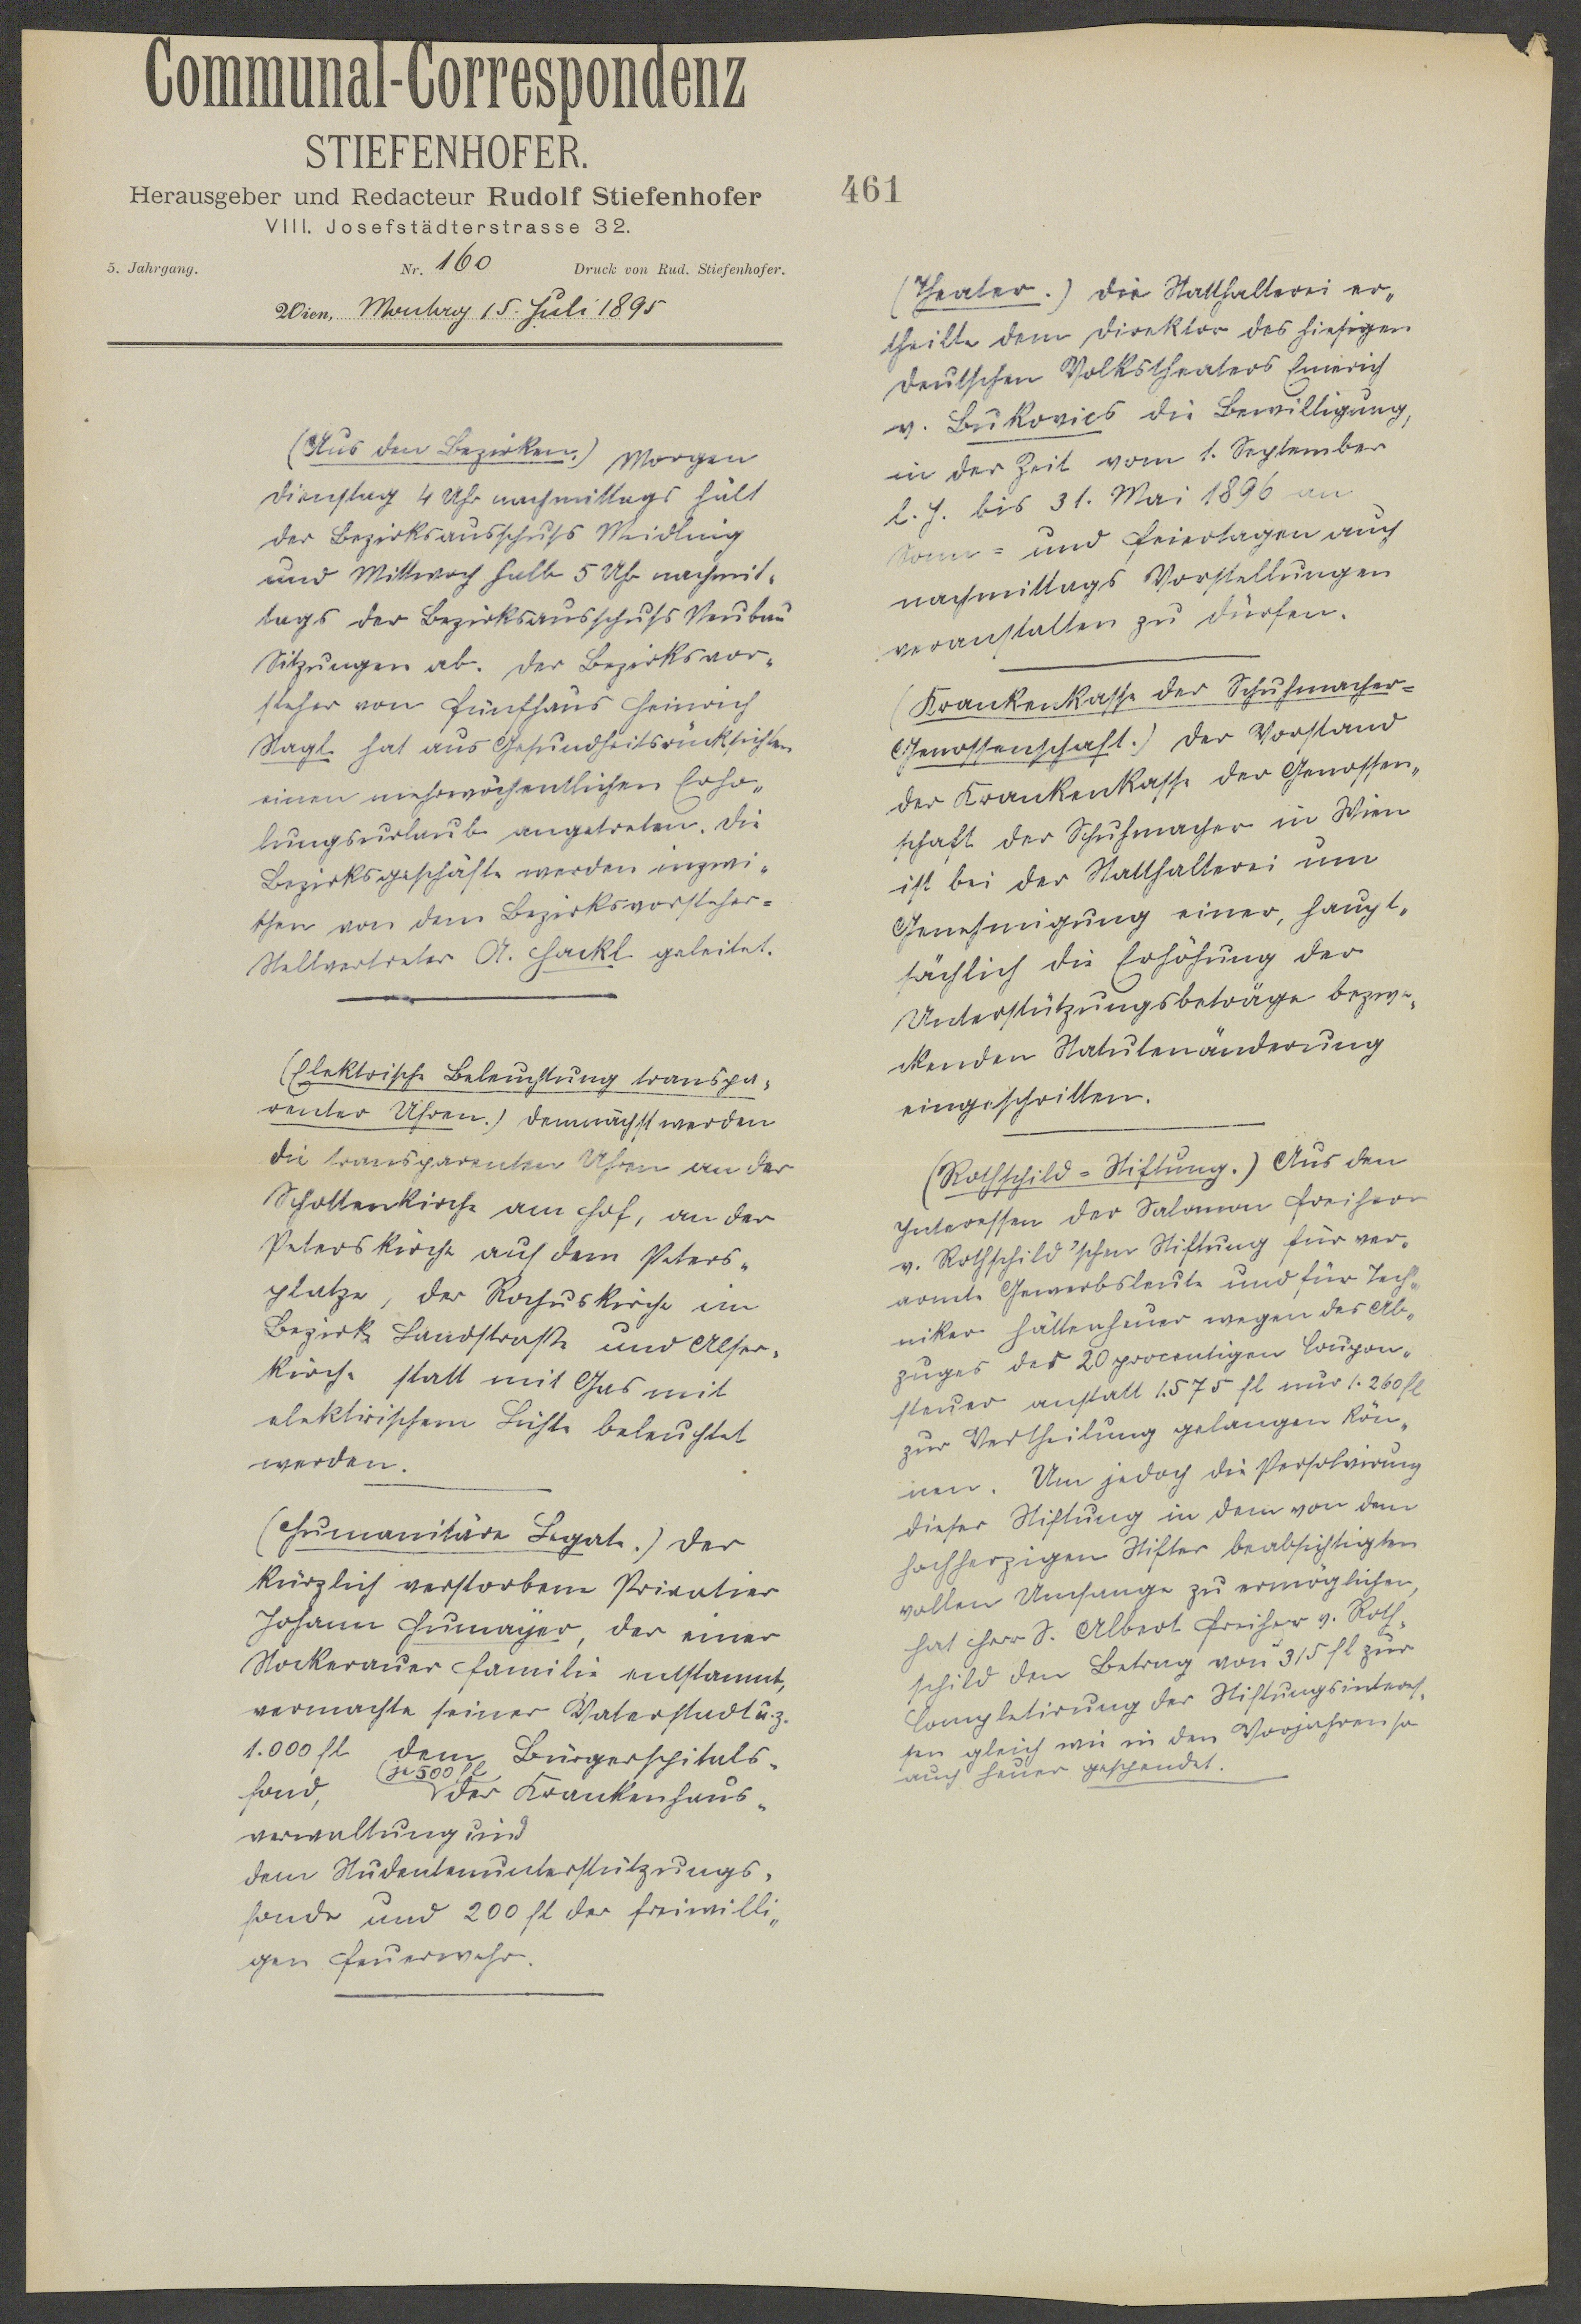 Communal-Correspondenz
STIEFENHOFER.
Herausgeber und Redacteur Rudolf Stiefenhofer
VIII. Josefstädterstrasse 32.
5. Jahrgang. Nr. 160 Druck von Rud. Stiefenhofer.
Wien, Montag 15. Juli 1895
(Aus den Bezirken.) Morgen
Dienstag 4 Uhr nachmittags hält
der Bezirksausschuß Meidling
und Mittwoch halb 5 Uhr nachmit-
tags der Bezirksausschuß Neubau
Sitzungen ab. Der Bezirksvor-
steher von Fünfhaus Heinrich
Nagl hat aus Gesundheitsrücksichten
einen mehrwöchentlichen Erho-
lungsurlaub angetreten. Die
Bezirksgeschäfte werden inzwi-
schen von dem Bezirksvorsteher-
Stellvertreter A. Hackl geleitet.
(Elektrische Beleuchtung transpa-
renter Uhren.) Demnächst werden
die transparenten Uhren an der
Schottenkirche am Hof, an der
Peterskirche auf dem Peters-
platze, der Rochuskirche im
Bezirk Landstraße und Alser-
kirche statt mit Gas mit
elektrischem Lichte beleuchtet
werden.
(Humanitäre Legate.) Der
kürzlich verstorbene Privatier
Johann Humayer, der einer
Stockerauer Familie entstammt,
vermachte seiner Vaterstadt u. z.
1.000 fl dem Bürgerspitals-
fond, je 500 fl der Krankenhaus-
verwaltung und
dem Studentenunterstützungs-
fonde und 200 fl der freiwilli-
gen Feuerwehr.
461
(Theater.) Die Statthalterei er-
theilte dem Direktor des hiesigen
Deutschen Volkstheaters Emerich
v. Bukovics die Bewilligung,
in der Zeit vom 1. September
l. J. bis 31. Mai 1896 an
Sonn- und Feiertagen auch
nachmittags Vorstellungen
veranstalten zu dürfen.
(Krankenkasse der Schuhmacher-
Genossenschaft.) Der Vorstand
der Krankenkasse der Genossen-
schaft der Schuhmacher in Wien
ist bei der Statthalterei um
Genehmigung einer, haupt-
sächlich die Erhöhung der
Unterstützungsbeträge bezwe-
ckenden Statutenänderung
eingeschritten.
(Rothschild-Stiftung.) Aus den
Interessen der Salomon Freiherr
v. Rothschild'schen Stiftung für ver-
armte Gewerbsleute und für Tech-
niker hätten heuer wegen des Ab-
zuges der 20 procentigen Coupon-
steuer anstatt 1.575 fl nur 1.260 fl
zur Vertheilung gelangen kön-
nen. Um jedoch die Persolvirung
dieser Stiftung in dem von dem
hochherzigen Stifter beabsichtigten
vollen Umfange zu ermöglichen,
hat Herr S. Albert Freiherr v. Roth-
schild den Betrag von 315 fl zur
Completirung der Stiftungsinteres-
sen gleich wie in den Vorjahren so
auch heuer gespendet.